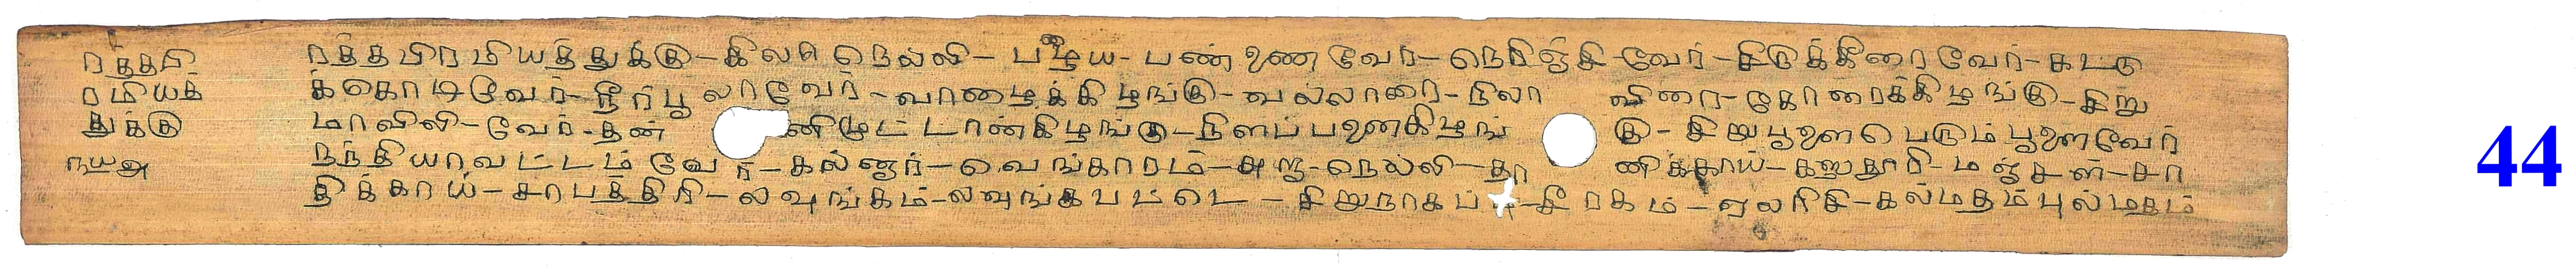 ரத்தபி
ரமியத்
துக்கு
ரத்தபிரமியத்துக்கு - கிலா நெல்லி - பண்ணைவேர் - நெரிஞ்சி வேர் - சிடுக்கீரை வேர் - கட்டு
க்கொடிவேர் - நீர்பூலாவேர் - வாழைக்கிழங்கு - வல்லாரை - நிலா விரை - கோரைக்கிழங்கு - சிறு
மாவிலி - வேர் - தண்ணிமூட்டான்கிழங்கு - நிளப்பனைகிழங்கு - சிறுபூளை பெரும்பூளைவேர்
நந்தியாவட்டம் வேர் - கல்னார் - வெங்காரம் - அரு நெல்லி - தானிக்காய் - கஸ்தூரி - மஞ்சள் - சா
திக்காய் - சாபத்திரி - லவுங்கம் - லவுங்கபட்டை - சிறுநாகப் - சீரகம் - ஏலரிசி - கல்மதம் புல்மதம்
44